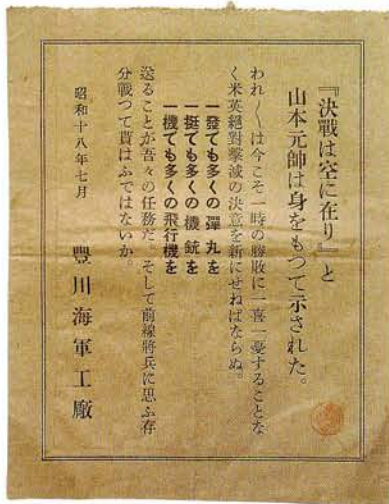 『決戰は空に在り』と
山本元帥は身をもつて示された。
われ〳〵は今こそ一時の勝敗に一喜一憂することな
く米英絕對擊滅の決意を新にせねばならぬ。
一發でも多くの彈丸を
一挺でも多くの機銃を
一機でも多くの飛行機を
送ることが吾々の任務だ。そして前線將兵に思ふ存
分戰つて貰はふではないか。
昭和十八年七月
豐川海軍工廠